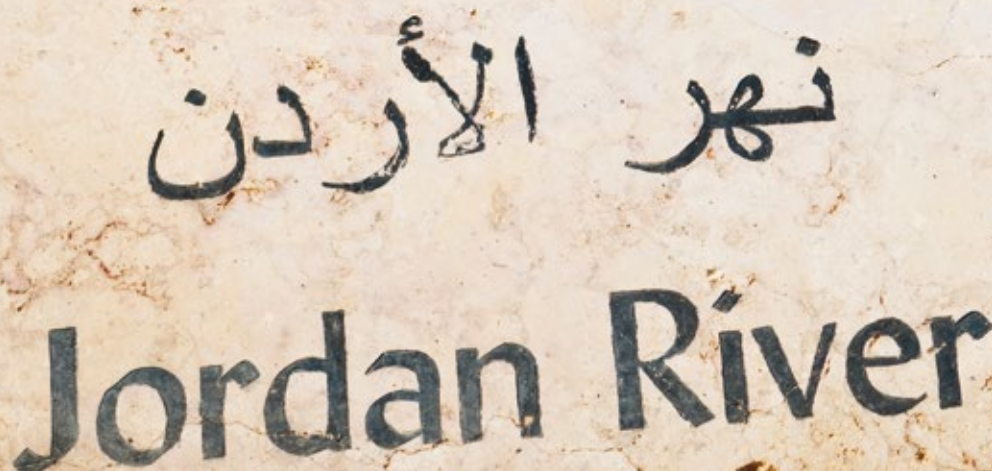 نهر الأردن
Jordan River